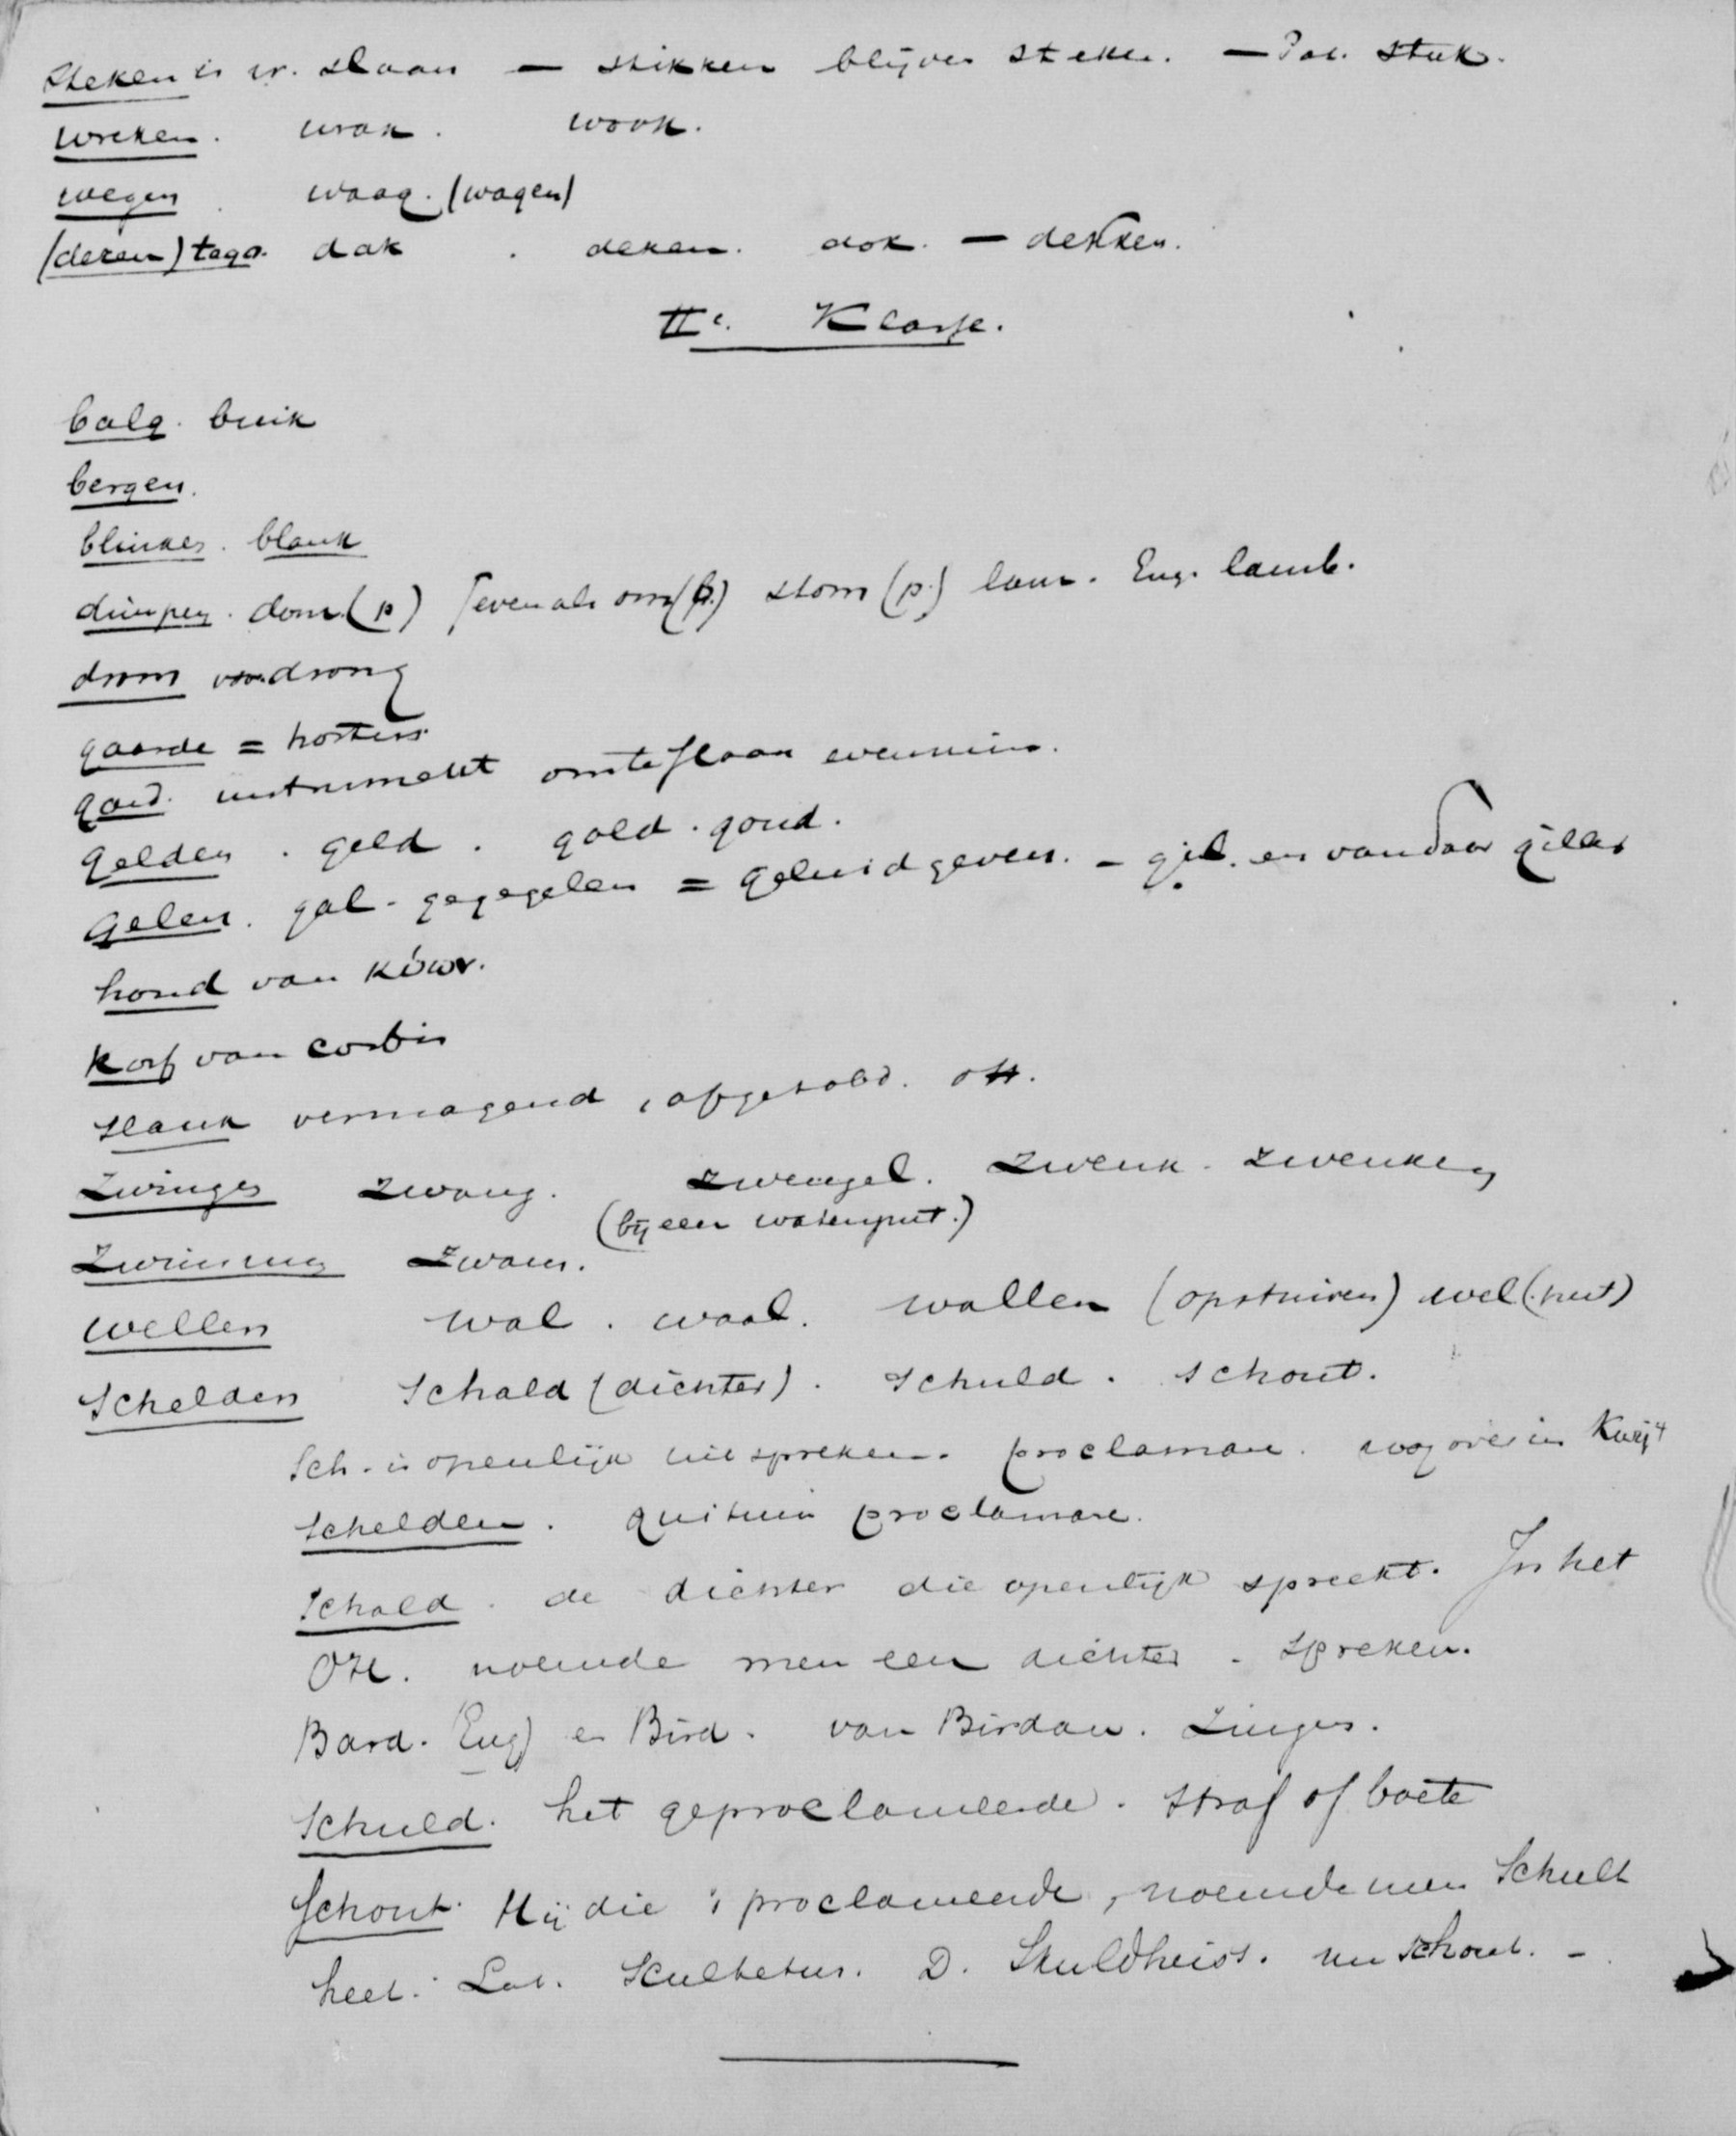 steken is vr. slaan — stikken blijven steken. — Pol. stuk.
wreken. wrak. wook.
wegen waag. (wagen)
(deken) tego. dak . deken. dok. — dekken.
IIe. Klasse.
balg. buik
bergen.
blinken. blank
dimpen. dom. (p) [evenals om(b.) stom (p.) lam. Eng. lamb.
drom van drong
gaarde = hortus
gard. instrument om te slaan evenmin.
gelden. geld. gold. goud.
gelen. gal. gegegelen = geluid geven. – gil. en vandaar gillen
hond van κύων.
Korf van corbis
slank vermagend, afgetobd.
zwingen zwang. zwengel. zwenk. zwenken
(bij een waterput.)
zwimmen zwam.
wellen wal. waal. wallen (opstuiven) wel (put)
schelden Schald (dichter). schuld. schout.
Sch. is openlijk uitspreken. proclamare. nog over in kwijt
schelden. quitum proclamare.
Schald. de dichter die openlijk spreekt. In het
OH. noemde men een dichter - spreken.
Bard. Eng) en Bird. van Birdan. Zingen.
Schuld. het geproclameerde. straf of boete
Schout. Hij die 't proclameerde, noemde men Schult
heet. Lat. Scultetus. D. Skuldheiss. nu schout. –